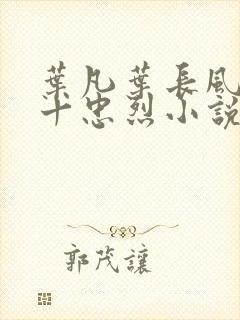 葉凡葉長風
十忠烈小說
郭茂讓